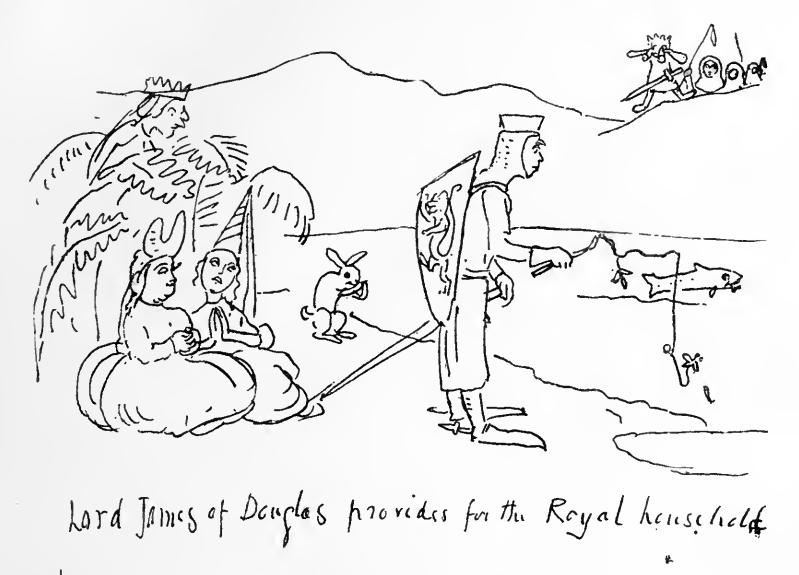 Lord James of Douglas provides for the Royal household